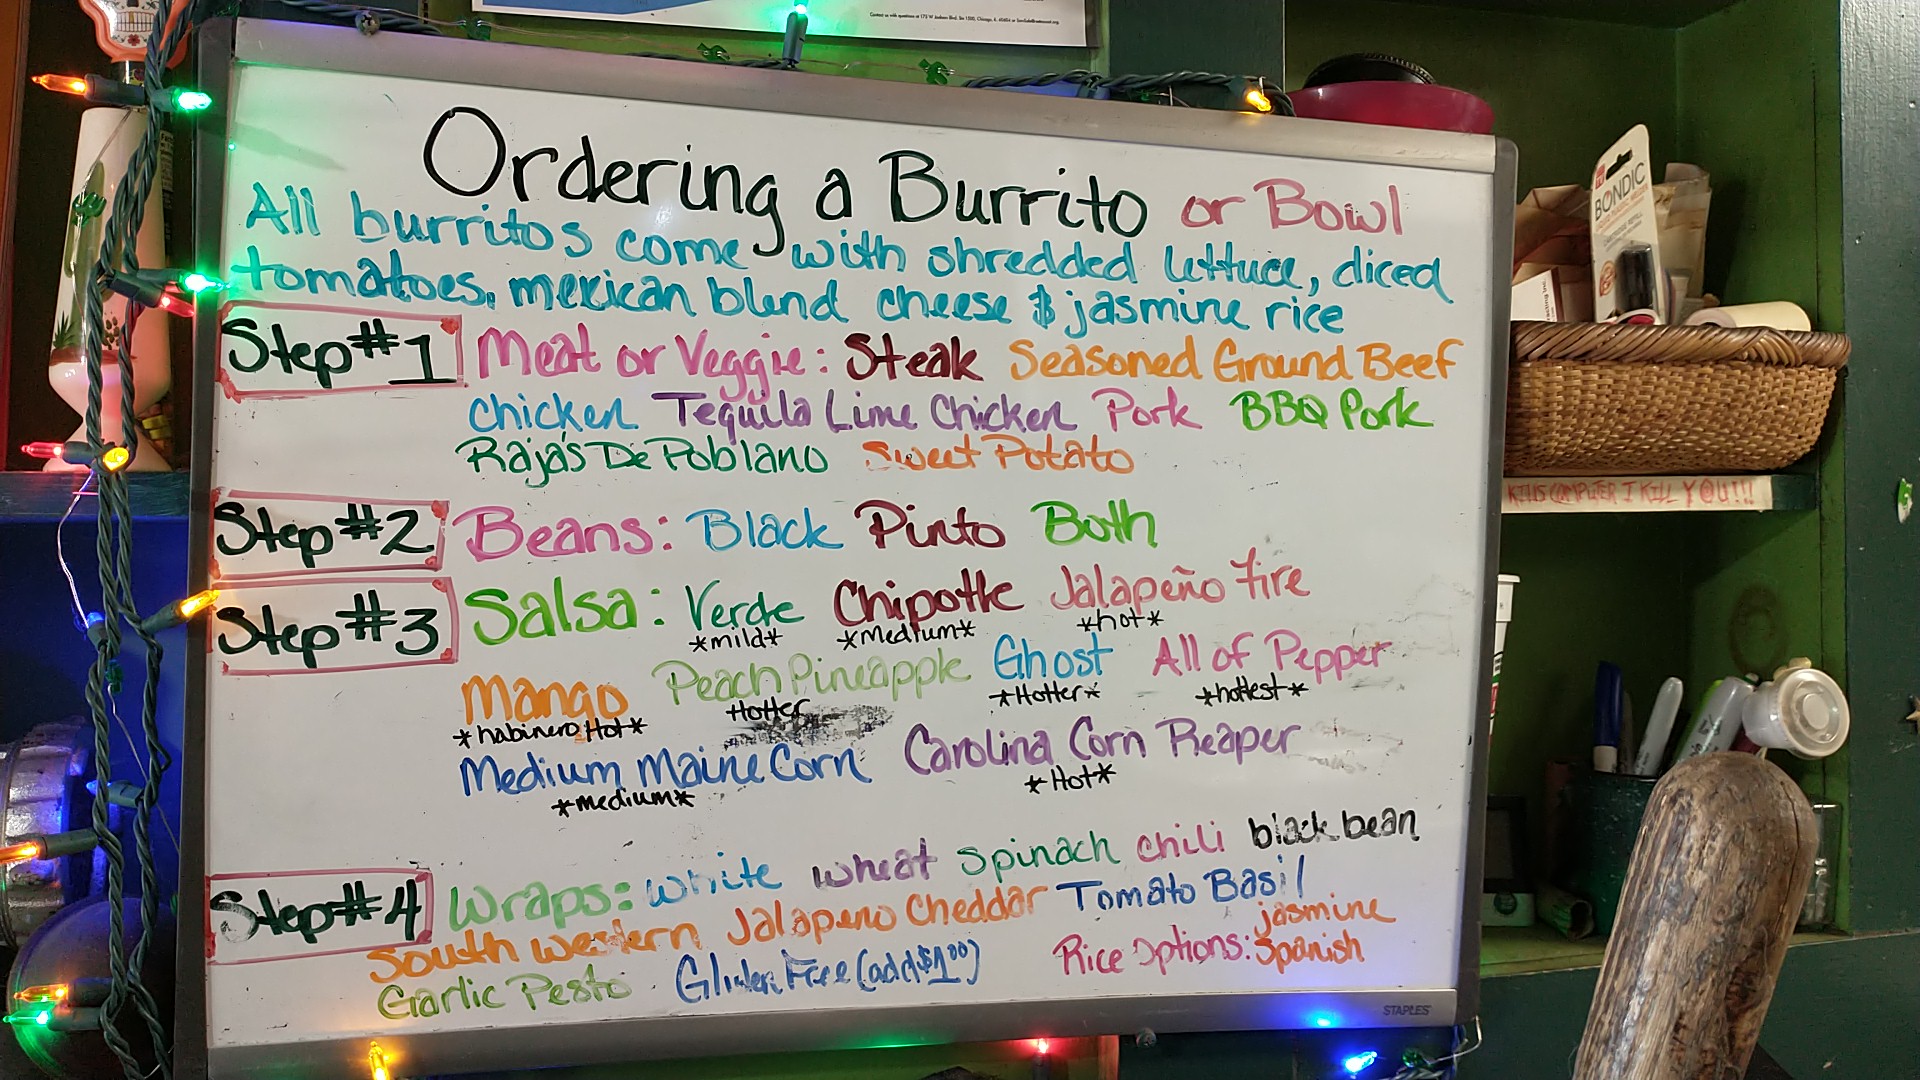 Contact us with questions at 175 W Jackson Blvd, Ste 1500, Chicago, IL 60604 or
Ordering a Burrito or Bowl
All burritos come with shredded lettuce, diced
tomatoes, mexican blend cheese & jasmine rice
Step #1 Meat or Veggie: Steak Seasoned Ground Beef
Chicken Tequila Lime Chicken Pork BBQ Pork
Rajas De Poblano Sweet Potato
Step #2 Beans: Black Pinto Both
Step #3 Salsa: Verde Chipotle Jalapeño Fire
*mild* *medium* *hot*
Mango Peach Pineapple Ghost All of Pepper
*habinero Hot* Hotter *Hotter* *hottest*
Medium Maine Corn Carolina Corn Reaper
*medium* *Hot*
Step #4 Wraps: white wheat spinach chili black bean
South western Jalapeno Cheddar Tomato Basil
Garlic Pesto Gluten Free (add $1.00) Rice Options: jasmine
Spanish
STAPLES
BONDIC
COMPUTER I KILL YOU!!!